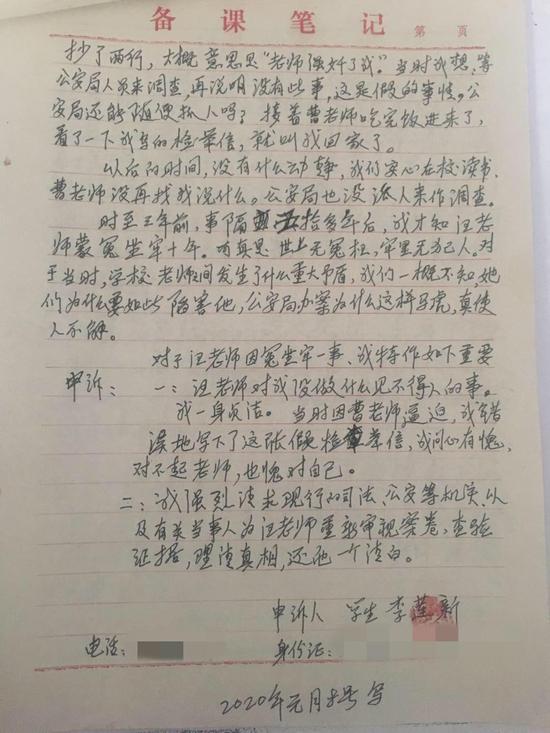 备课笔记
第 页
抄了两行，大概意思是“老师强奸了我”。当时我想，等
公安局人员来调查，再说明没有些事，这是假的事情。公
安局还能随便抓人吗？接着曹老师吃完饭进来了，
看了一下我写的检举信，就叫我回家了。
以后的时间，没有什么动静，我们安心在校读书，
曹老师没再找我说什么。公安局也没派人来作调查。
时至三年前，事隔五拾多年后，我才知汪老
师蒙冤坐牢十年。真是世上无冤枉，牢里无犯人。对
于当时，学校老师间发生了什么重大矛盾，我们一概不知她
们为什么要如此陷害他，公安局办案为什么这样马虎，真使
人不解。
对于汪老师因冤坐牢一事、我特作如下重要
申诉：
一：汪老师对我没做什么见不得人的事。
我一身贞洁。当时因曹老师逼迫，我错
误地写下了这张假检举信，我问心有愧，
对不起老师，也愧对自己。
二：我强烈请求现行的司法、公安等机关、以
及有关当事人为汪老师重新审视案卷、查验
证据，理清真相，还他一个清白。
申诉人 学生 李莲新
电话：
身份证：
2020年元月 号 写